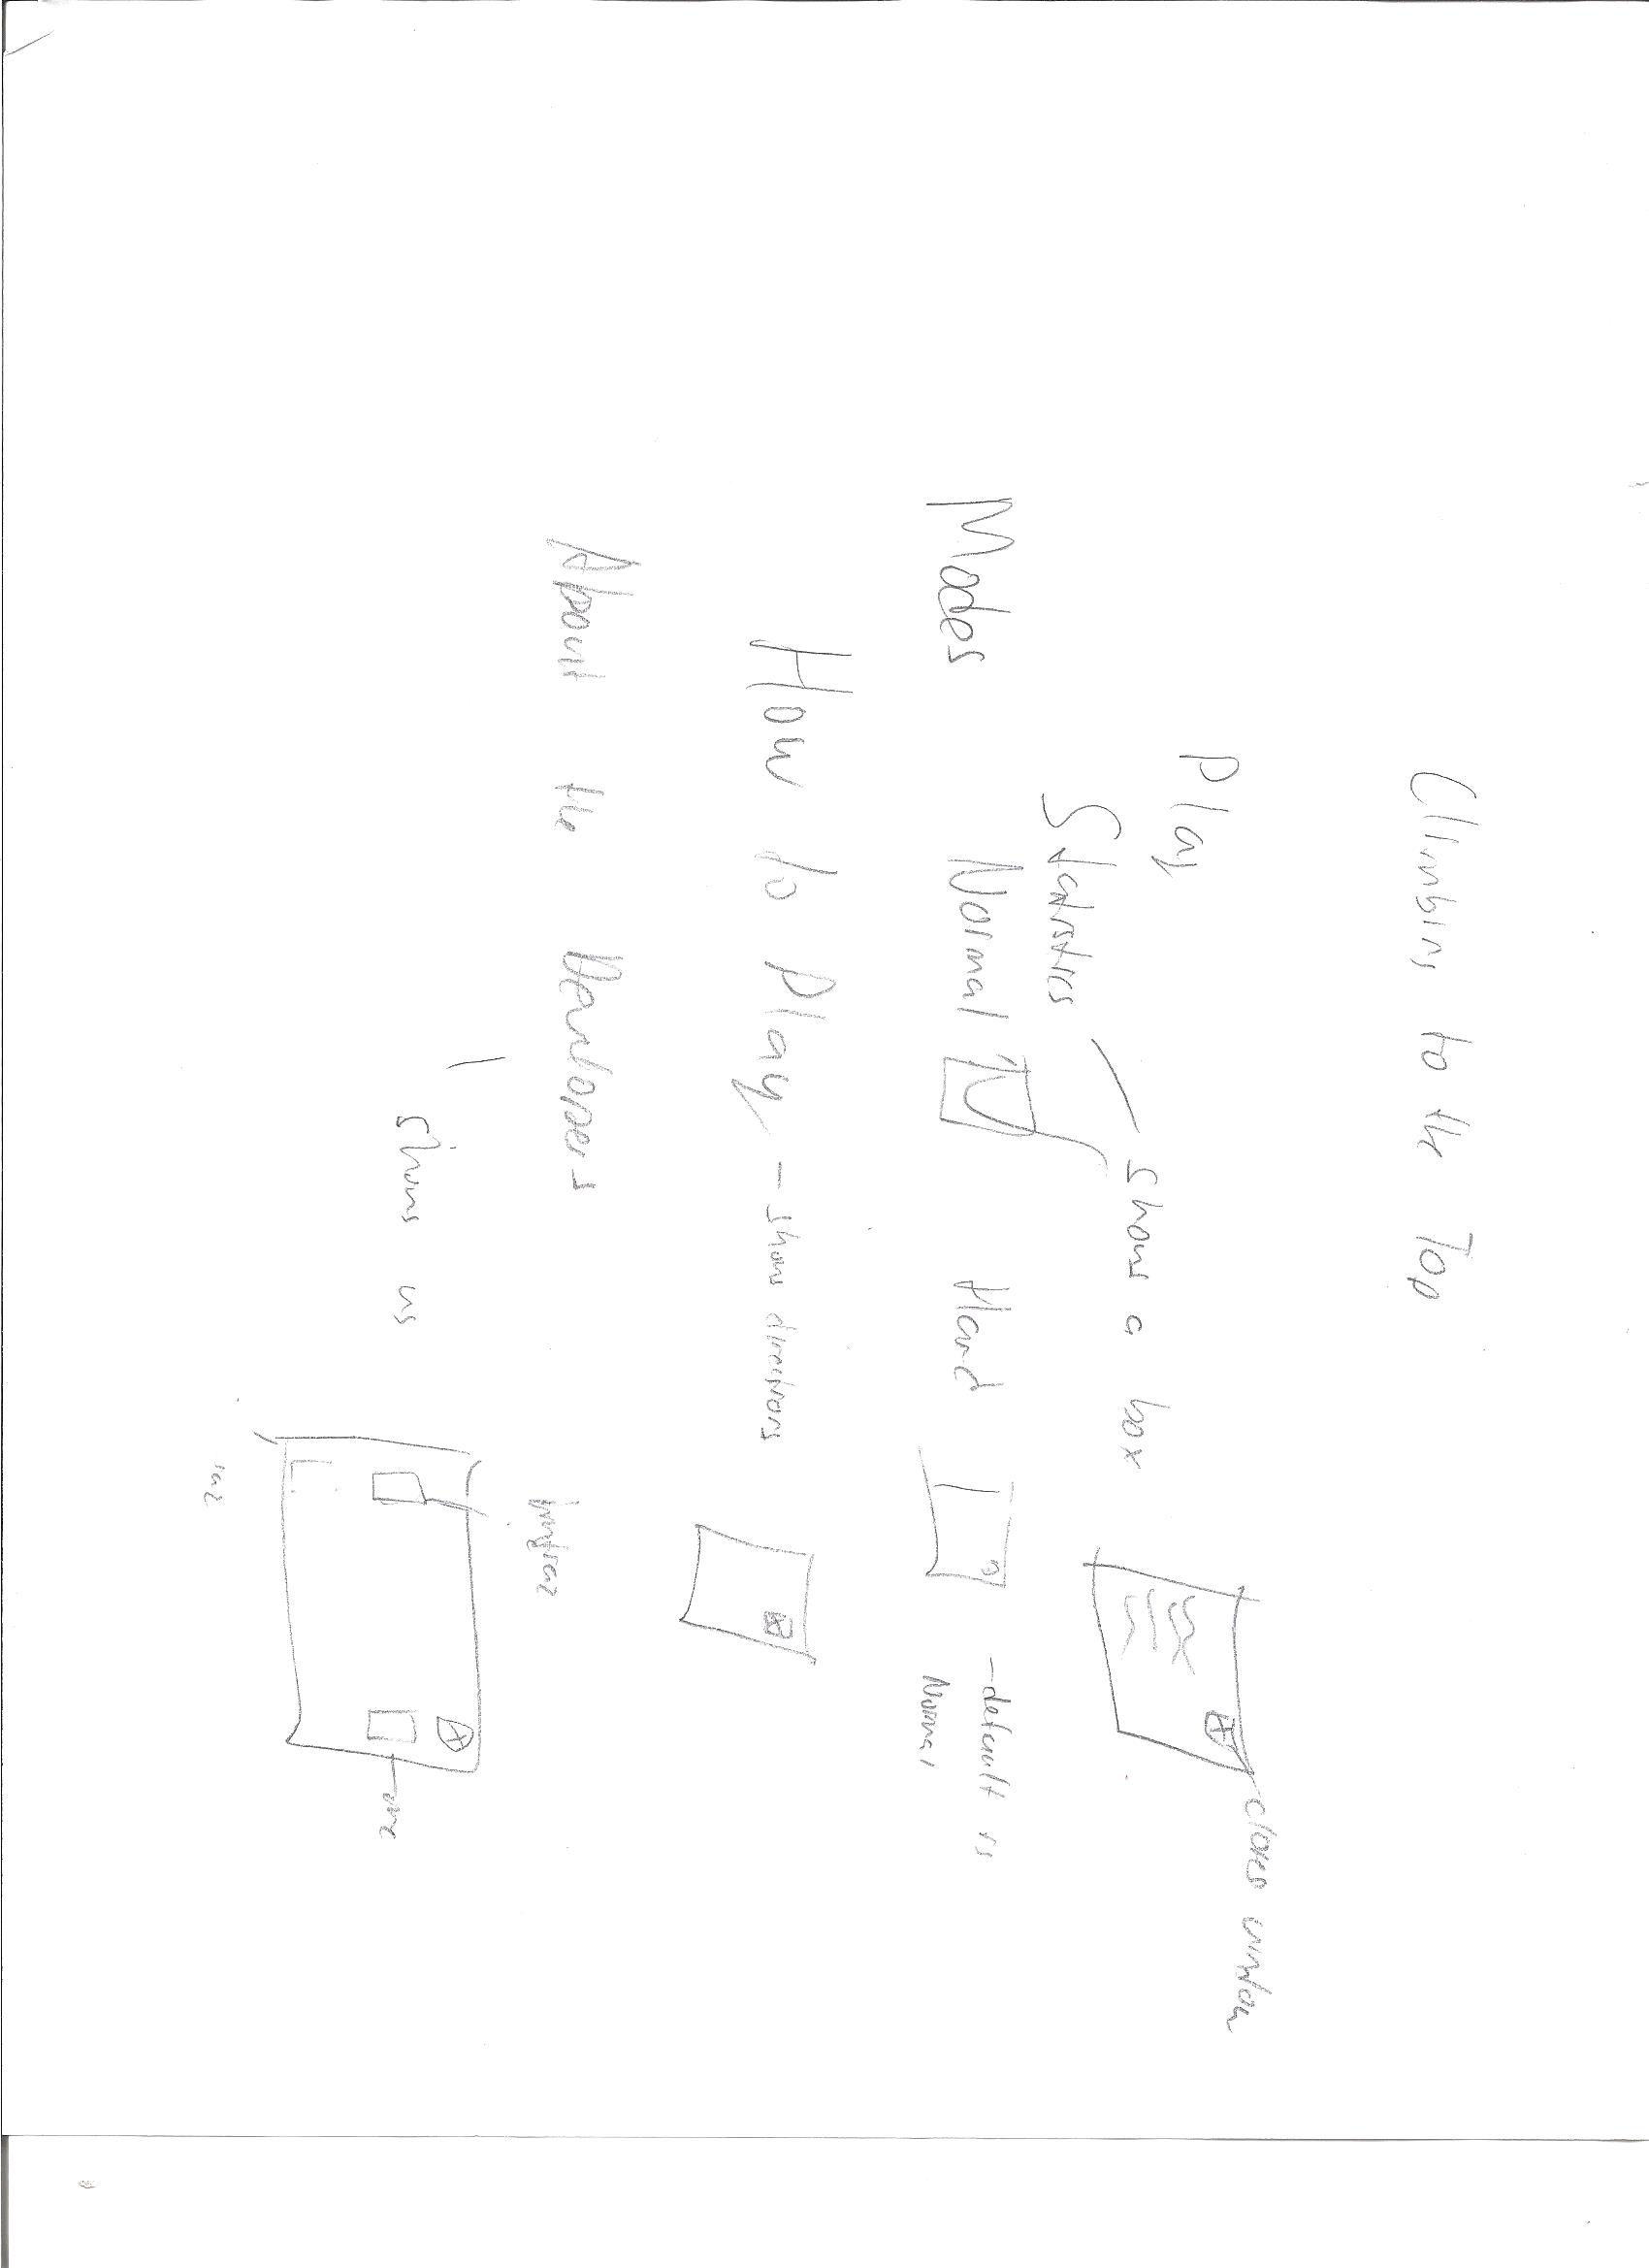 Climbing to the Top
Play
Statistics - shows a box
closes window
Modes Normal Hard - default is
Normal
How to Play - shows directions
About the Developers
shows us